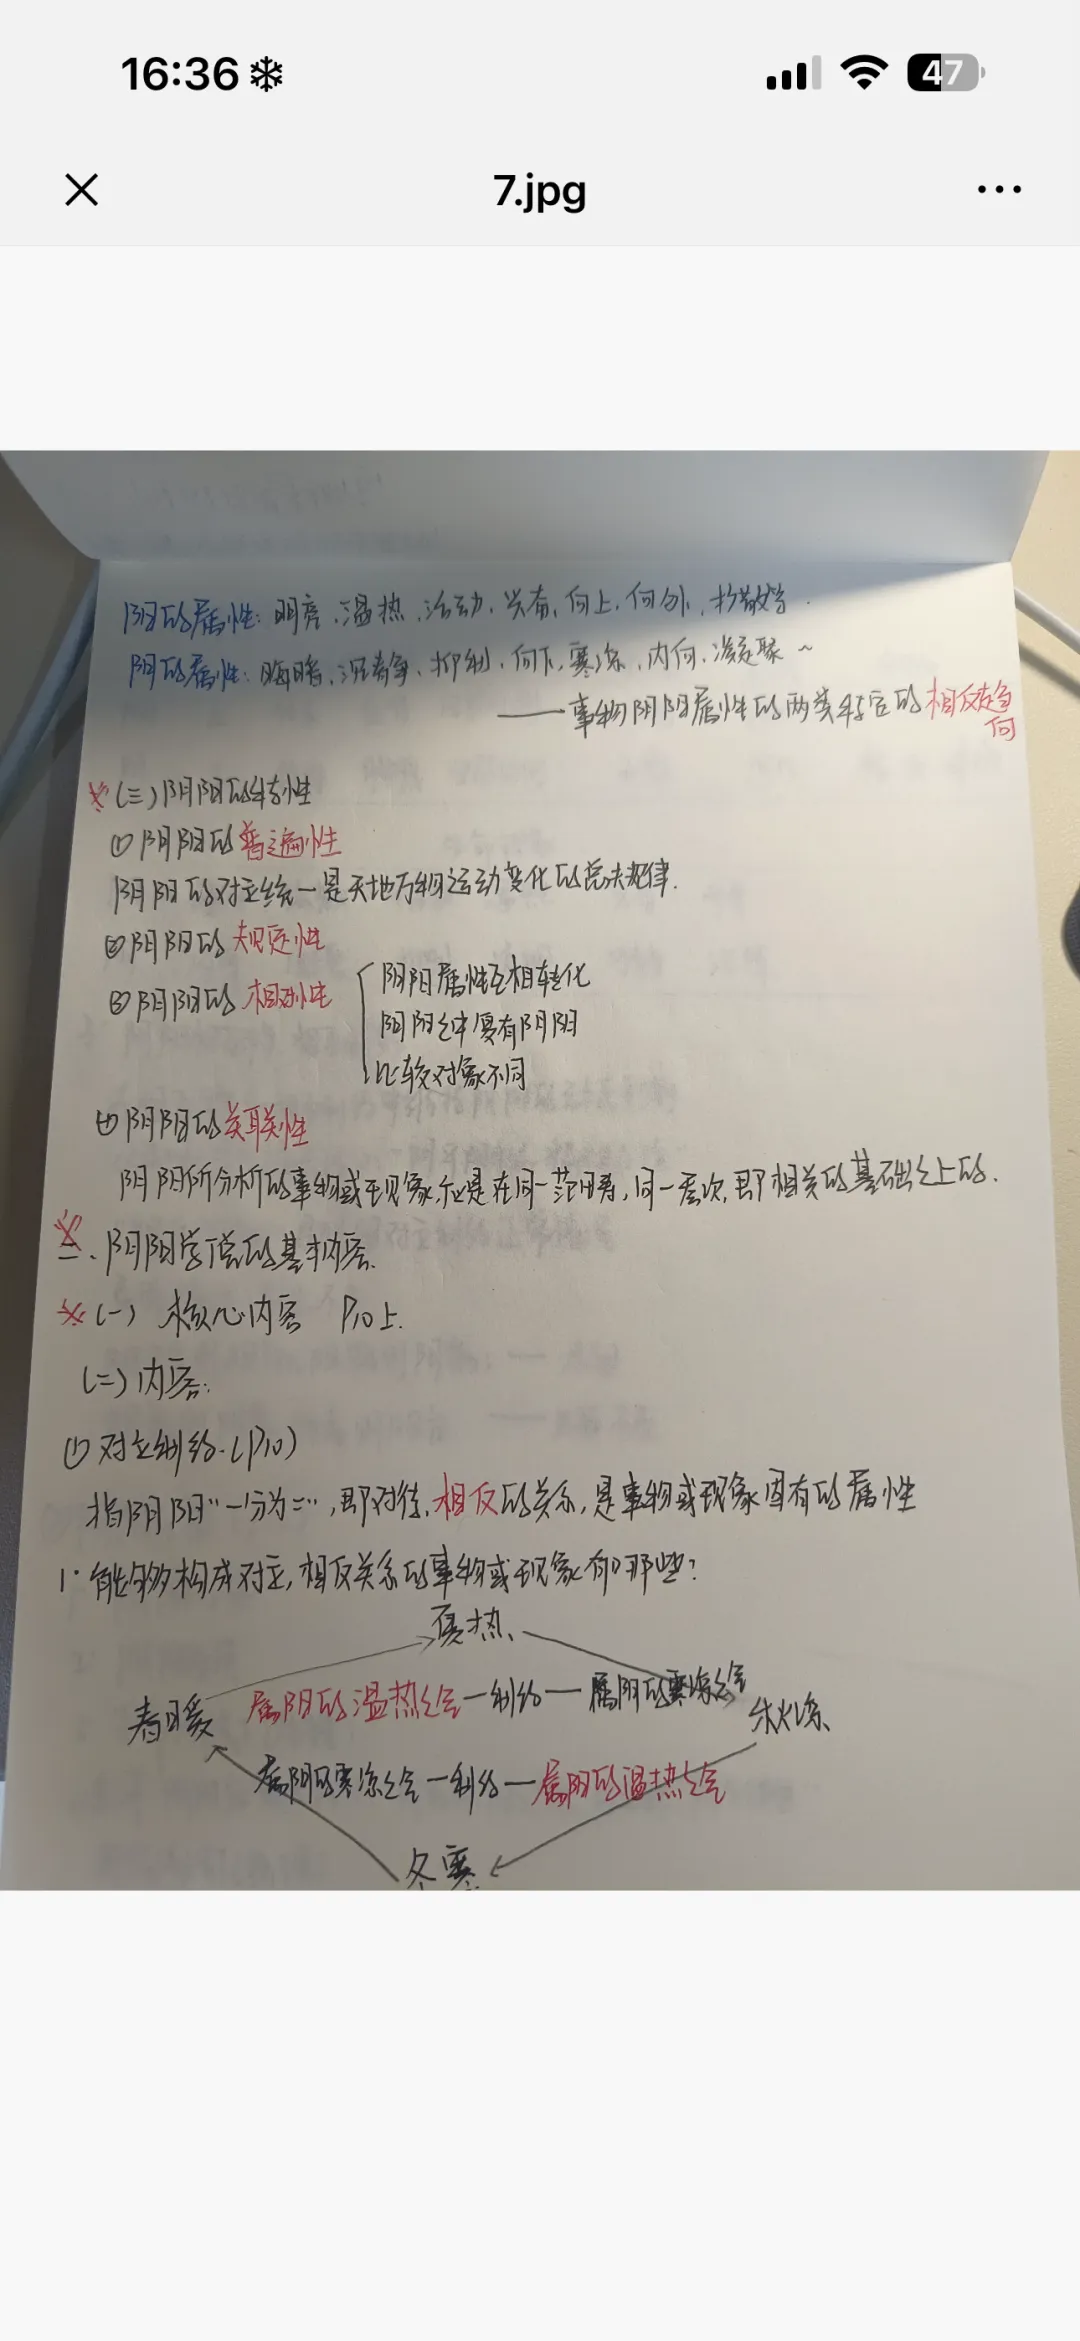 16:36
47
7.jpg
阳的属性：明亮、温热、活动、兴奋、向上、向外、扩散等.
阴的属性：晦暗、沉静、抑制、向下、寒凉、内向、凝聚~
——事物阴阳属性的两类特定的相反趋向
(三)阴阳的特性
①阴阳的普遍性
阴阳的对立统一是天地万物运动变化的总规律.
②阴阳的规定性
③阴阳的相对性
阴阳属性互相转化
阴阳之中复有阴阳
比较对象不同
④阴阳的关联性
阴阳所分析的事物或现象,应是在同一范畴,同一层次,即相关的基础之上的.
二、阴阳学说的基本内容.
(一) 核心内容 P10上.
(二)内容:
①对立制约.(P10)
指阴阳"一分为二",即对待、相反的关系,是事物或现象固有的属性
1.能够构成对立,相反关系的事物或现象有哪些?
夏热、
属阳的温热之气—制约—属阴的寒凉之气
春暖
秋凉、
属阴的寒凉之气—制约—属阳的温热之气
冬寒